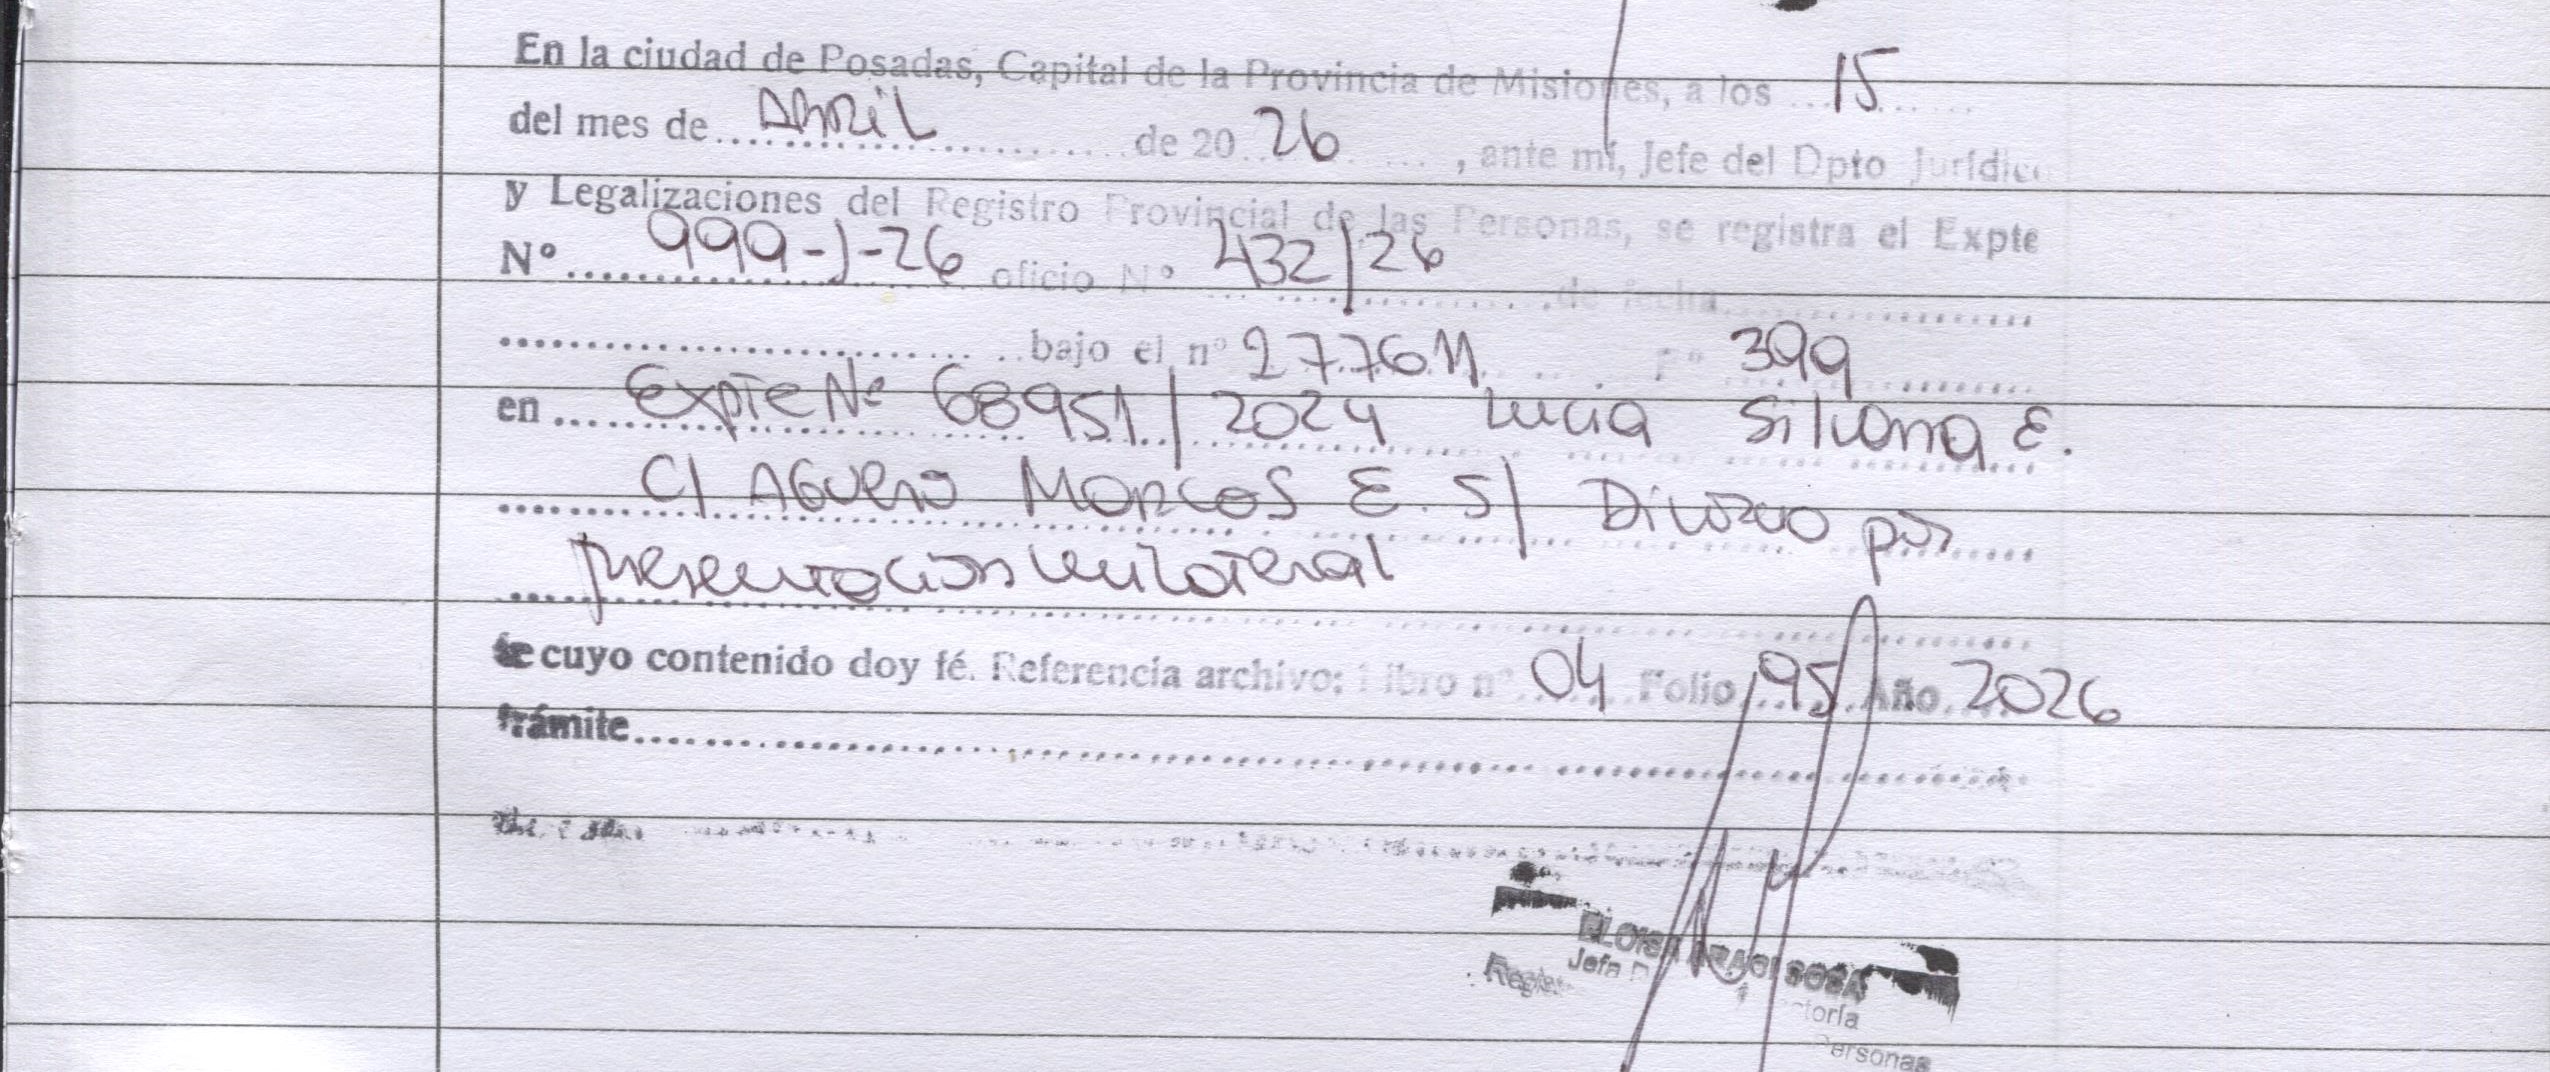 En la ciudad de Posadas, Capital de la Provincia de Misiones, a los 15
del mes de Abril de 20 26, ante mí, Jefe del Dpto Jurídico
y Legalizaciones del Registro Provincial de las Personas, se registra el Expte
Nº 999-J-26 oficio Nº 432/26 de fecha
bajo el nº 277611 Fº 399
en Expte Nº 68951/2024 Lucia Silvana E.
C/ Aguero Marcos E. S/ Divorcio por
presentacion unilateral
de cuyo contenido doy fé. Referencia archivo: Libro nº 04 Folio 95 Año 2026
trámite
SOSA
Jefa
Regis
toría
ersonas